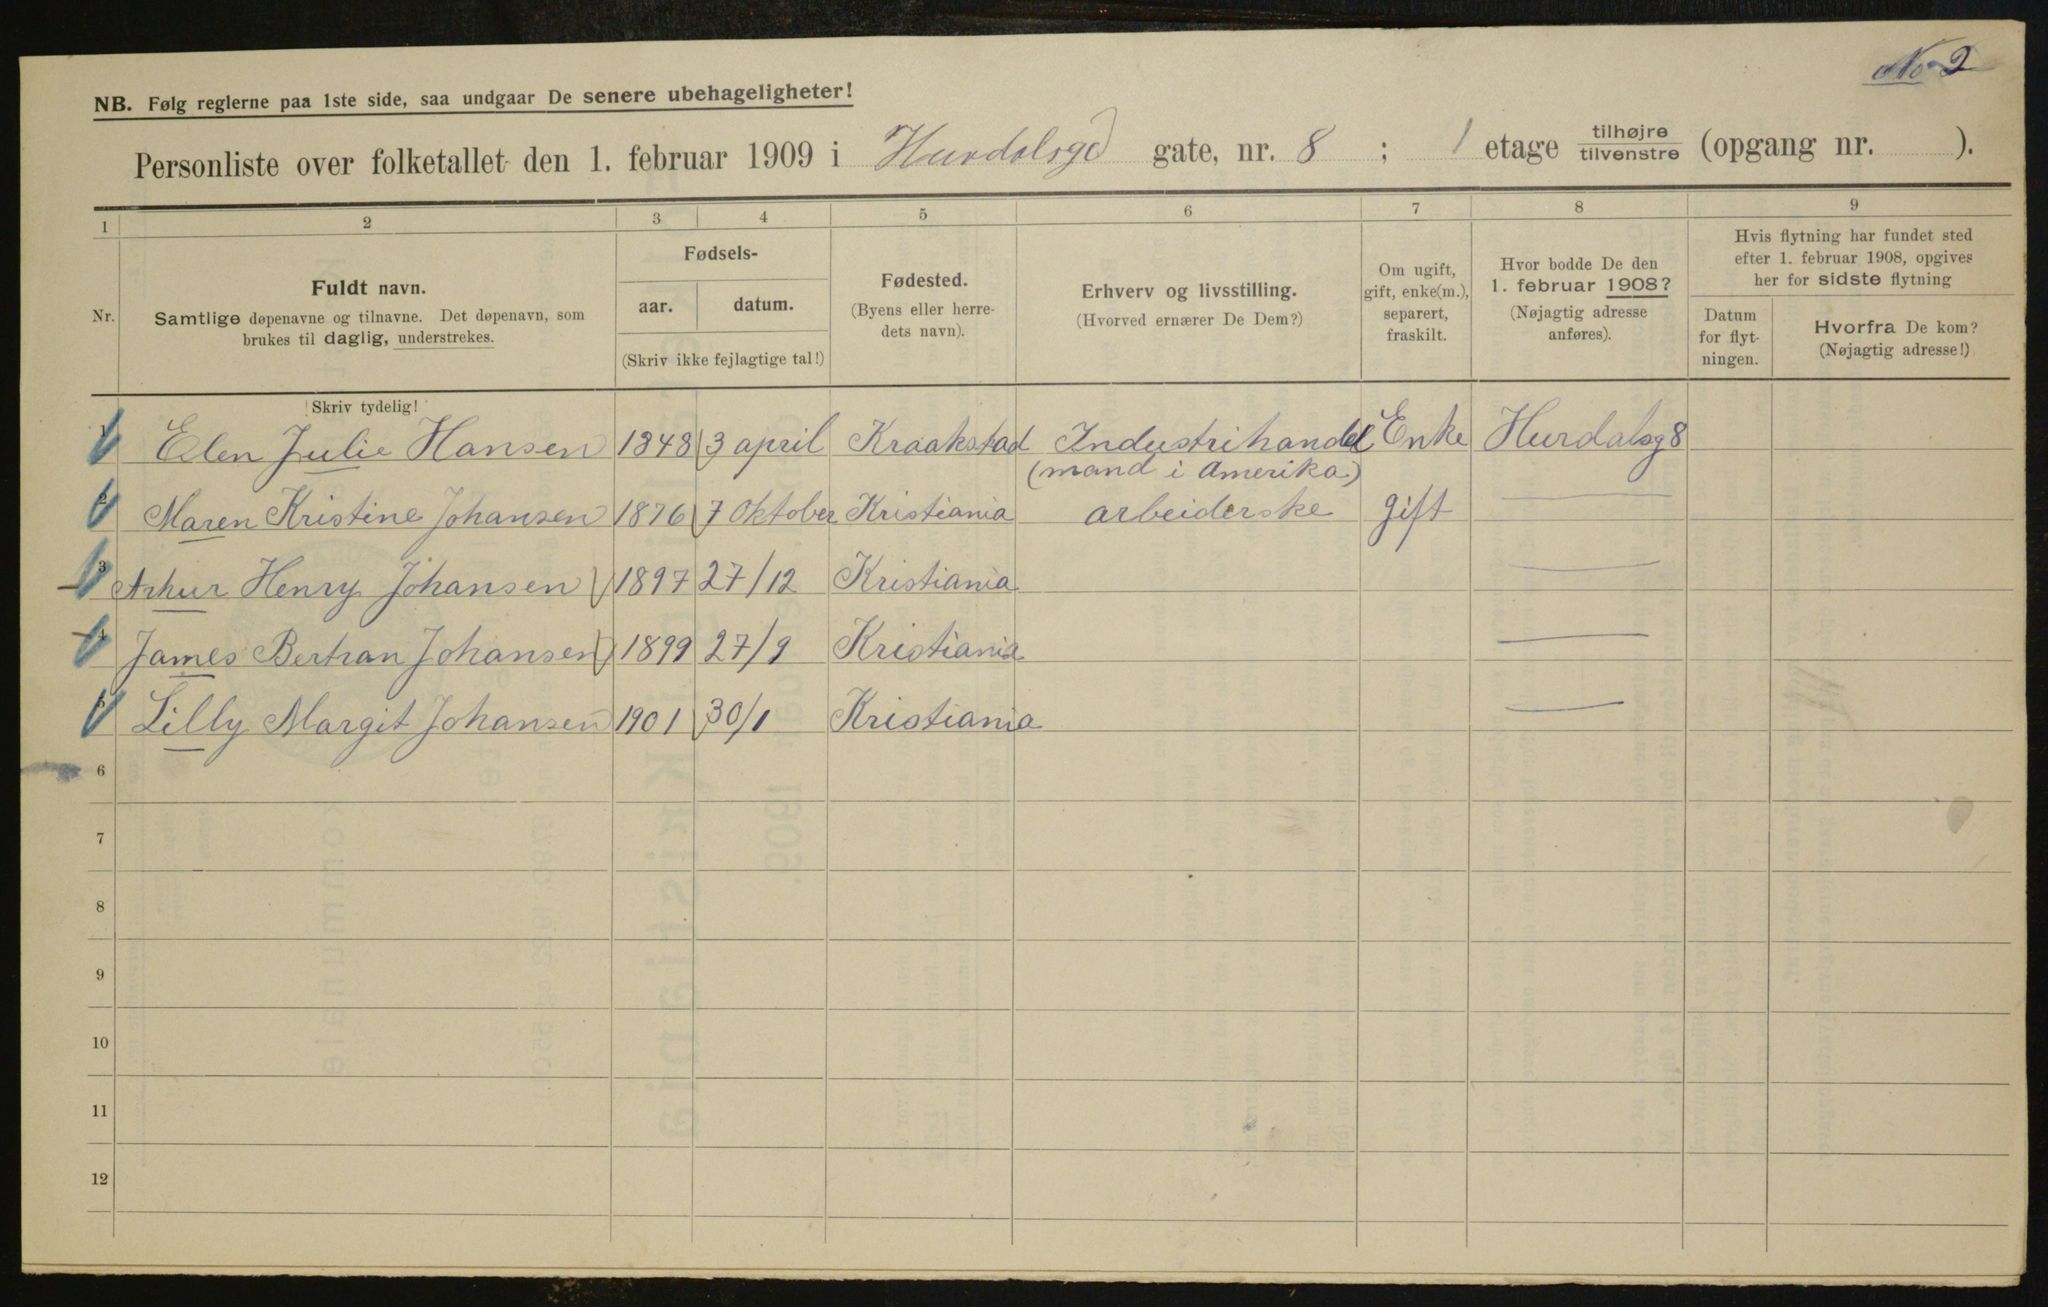 No 2
NB. Følg reglerne paa 1ste side, saa undgaar De senere ubehageligheter!
Personliste over folketallet den 1. februar 1909 i Hurdalsgd gate, nr. 8 ; 1 etage tilhøjre tilvenstre (opgang nr. ).
1 2 3 4 5 6 7 8 9
Nr.
Fuldt navn.
Samtlige døpenavne og tilnavne. Det døpenavn, som
brukes til daglig, understrekes.
Fødsels-
aar. datum.
(Skriv ikke fejlagtige tal!)
Fødested.
(Byens eller herre-
dets navn).
Erhverv og livsstilling.
(Hvorved ernærer De Dem?)
Om ugift,
gift, enke(m.),
separert,
fraskilt.
Hvor bodde De den
1. februar 1908?
(Nøjagtig adresse
anføres).
Hvis flytning har fundet sted
efter 1. februar 1908, opgives
her for sidste flytning
Datum
for flyt-
ningen.
Hvorfra De kom?
(Nøjagtig adresse!)
Skriv tydelig!
1 Elen Julie Hansen 1848 3 april Kraakstad Industrihandel Enke Hurdalsg 8
(mand i Amerika)
2 Maren Kristine Johansen 1876 7 Oktober Kristiania arbeiderske gift
3 Arhur Henry Johansen 1897 27/12 Kristiania
4 James Bertran Johansen 1899 27/9 Kristiania
5 Lilly Margit Johansen 1901 30/1 Kristiania
6
7
8
9
10
11
12